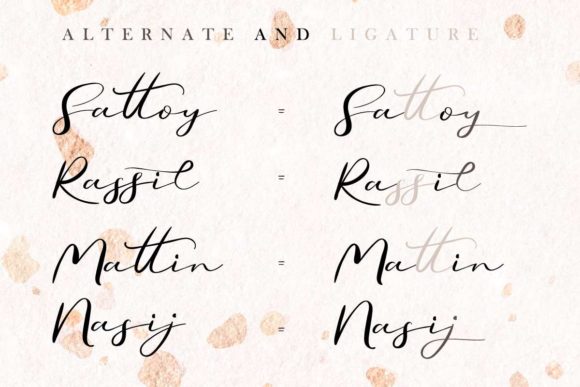 ALTERNATE AND LIGATURE
Sattoy = Sattoy
Rassil = Rassil
Mattin = Mattin
Nasij = Nasij